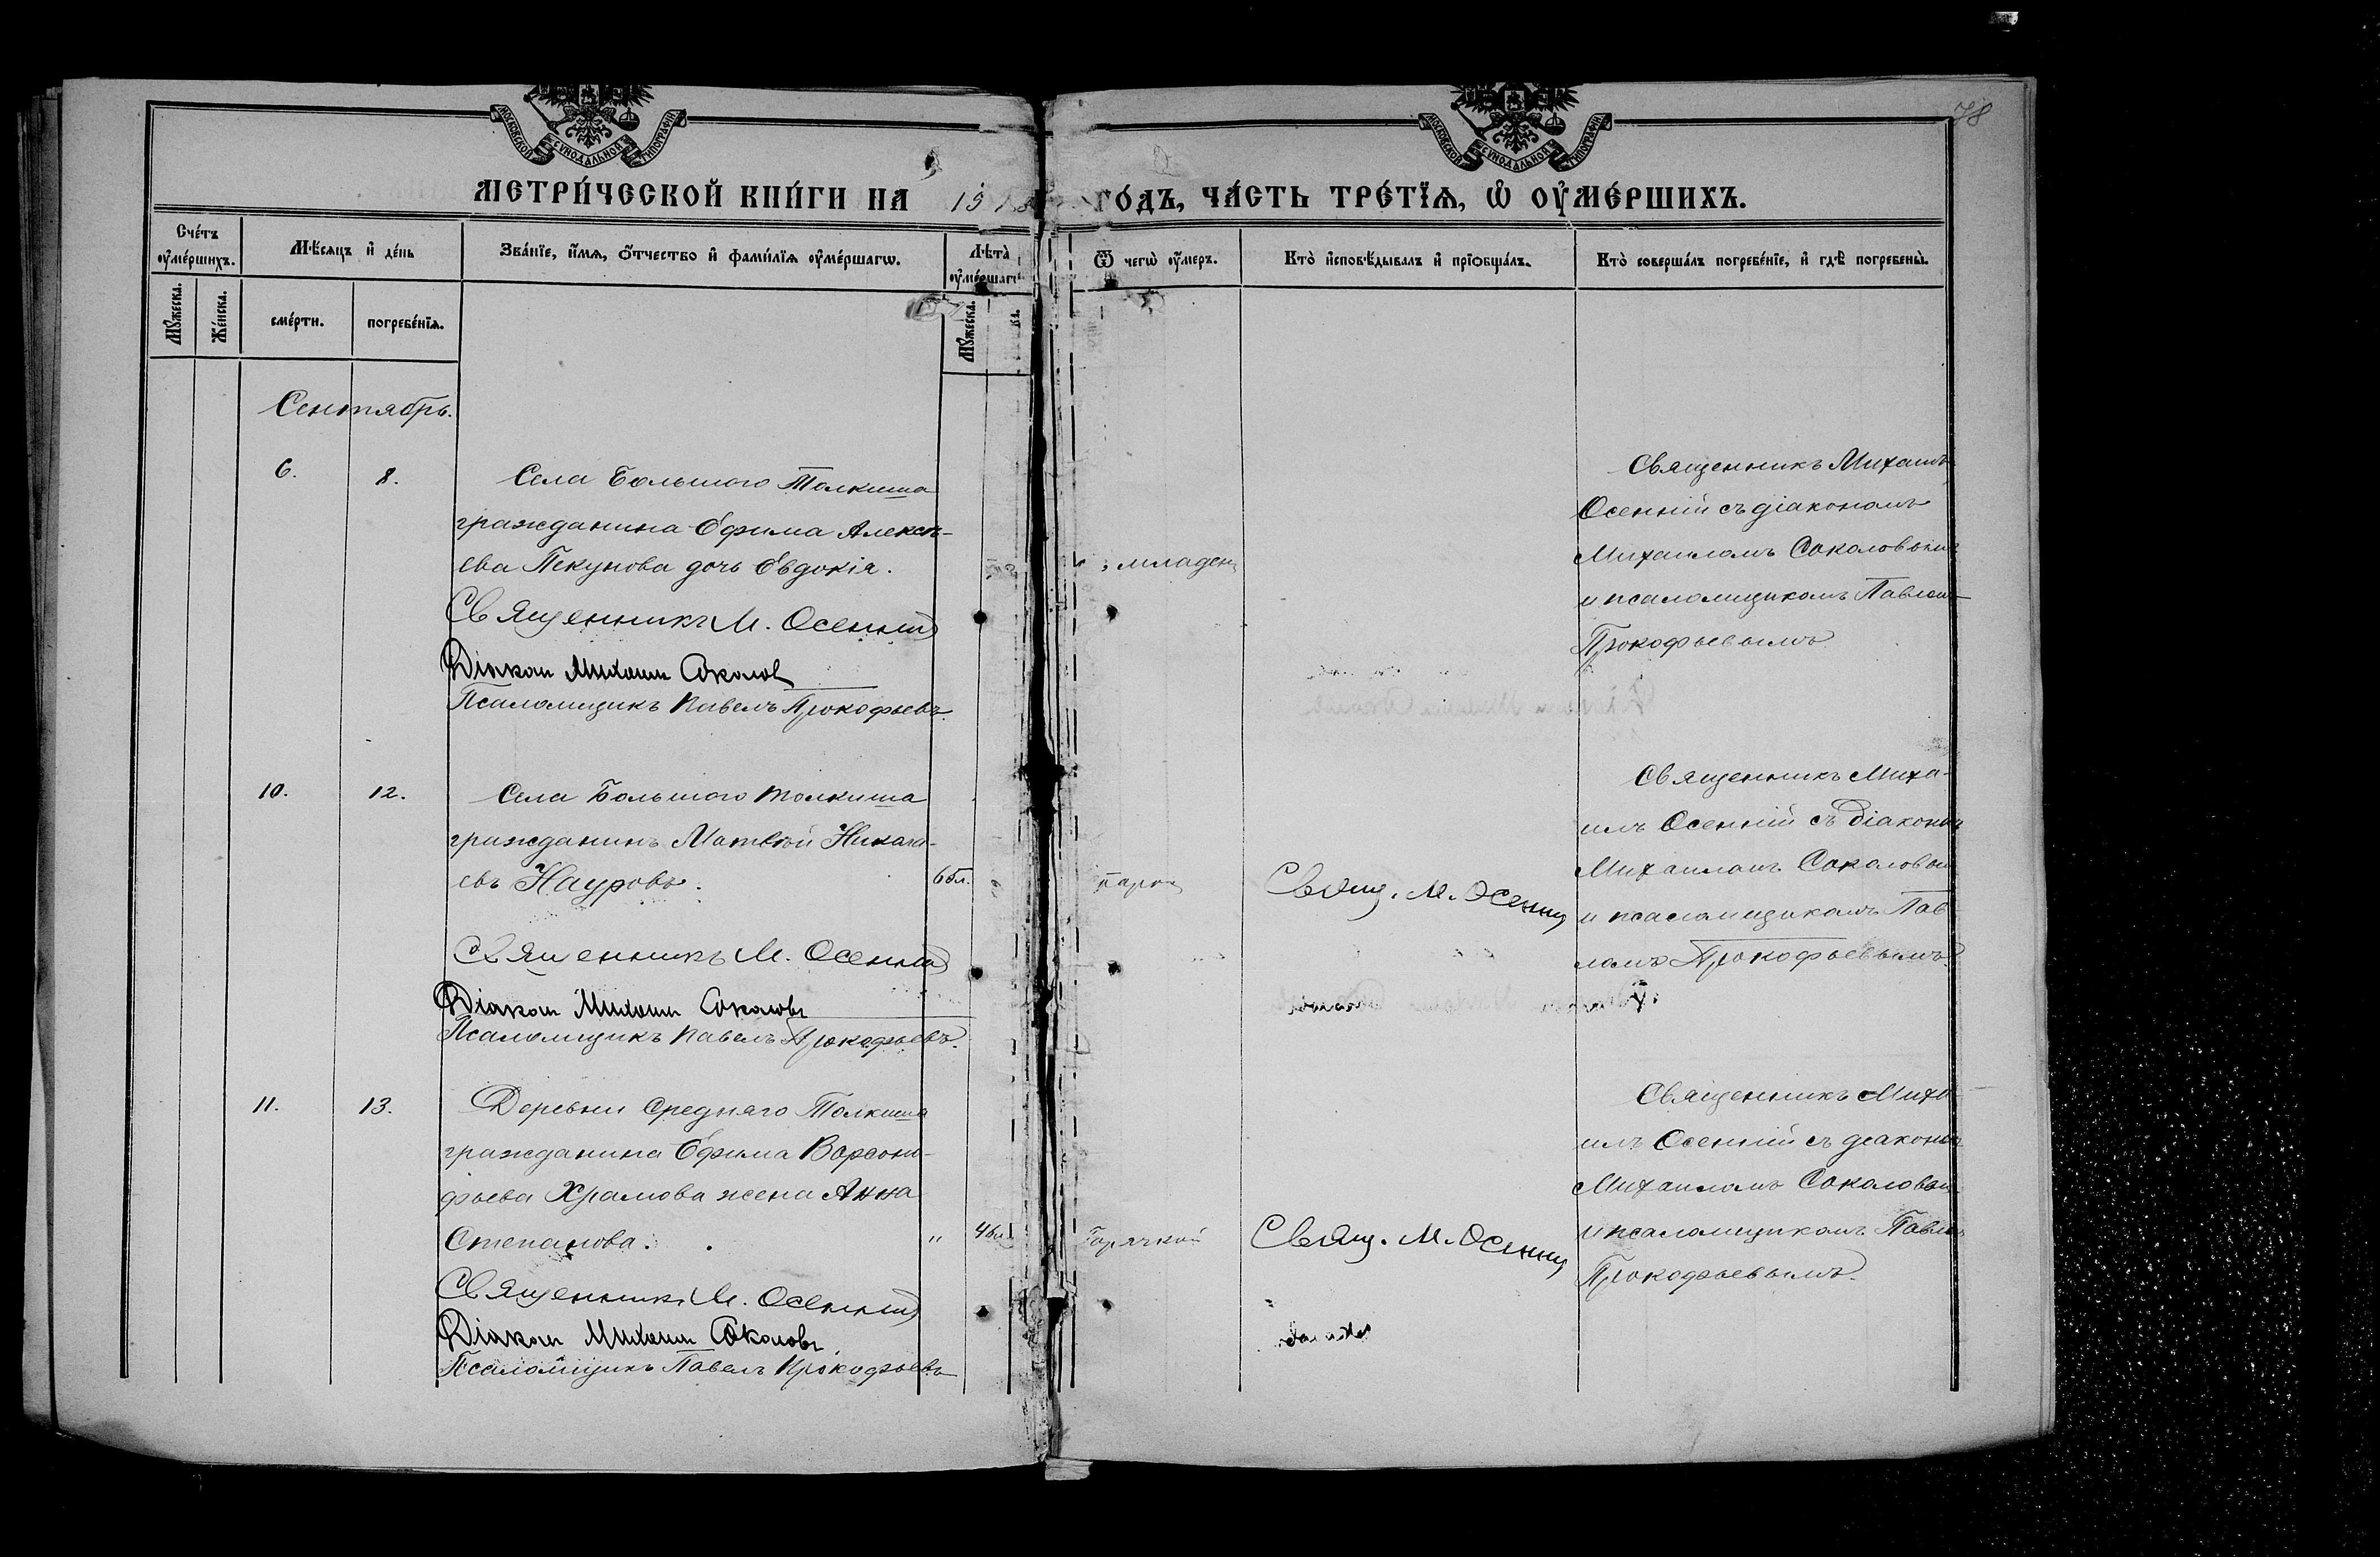 78
МОСКОВСКОЙ СѴНОДАЛЬНОЙ ТИПОГРАФІИ
МОСКОВСКОЙ СѴНОДАЛЬНОЙ ТИПОГРАФІИ
МЕТРИ́ЧЕСКОЙ КНИ́ГИ НА 191 ГО́ДЪ, ЧА́СТЬ ТРЕ́ТЇѦ, Ѡ҆ ОУ҆МЕ́РШИХЪ.
Сче́тъ оу҆ме́ршихъ.
Мѣ́сѧцъ и҆ де́нь
Зва́нїе, и҆́мѧ, ѻ҆́тчество и҆ фами́лїѧ оу҆ме́ршагѡ.
Лѣта̀ оу҆ме́ршагѡ
Ѿ чегѡ̀ оу҆́меръ.
Кто̀ и҆сповѣ́дывалъ и҆ прїѡбща́лъ.
Кто̀ соверша́лъ погребе́нїе, и҆ гдѣ̀ погребены̀.
Мꙋ́жеска.
Же́нска.
сме́рти.
погребе́нїѧ.
Мꙋ́жеска.
Сентябрь.
6.
8.
Села Большого Толкиша
гражданина Ефима Алексѣ-
ева Пекунова дочь Евдокія.
Священникъ М. Осенній
Діакон Михаил Соколов
Псаломщикъ Павелъ Прокофьевъ.
младен
Священникъ Михаилъ
Осенній съ діакономъ
Михаиломъ Соколовымъ
и псаломщикомъ Павломъ
Прокофьевымъ
10.
12.
Села Большого Толкиша
гражданинъ Матвѣй Никола-
евъ Науровъ.
66л.
Священникъ М. Осенній
Діакон Михаил Соколовъ
Псаломщикъ Павелъ Прокофьевъ.
Свящ. М. Осенній
Священникъ Миха-
илъ Осенній съ діакономъ
Михаиломъ Соколовым
и псаломщикомъ Пав-
ломъ Прокофьевымъ.
11.
13.
Деревни Средняго Толкиша
гражданина Ефима Варсоно-
фьева Храмова жена Анна
Степанова.
"
46л
Священникъ М. Осенній
Діакон Михаил Соколовъ
Псаломщикъ Павелъ Прокофьевъ
Горячкой
Свящ. М. Осенній
Священникъ Миха-
илъ Осенній съ діакономъ
Михаиломъ Соколовым
и псаломщикомъ Павлом
Прокофьевымъ.